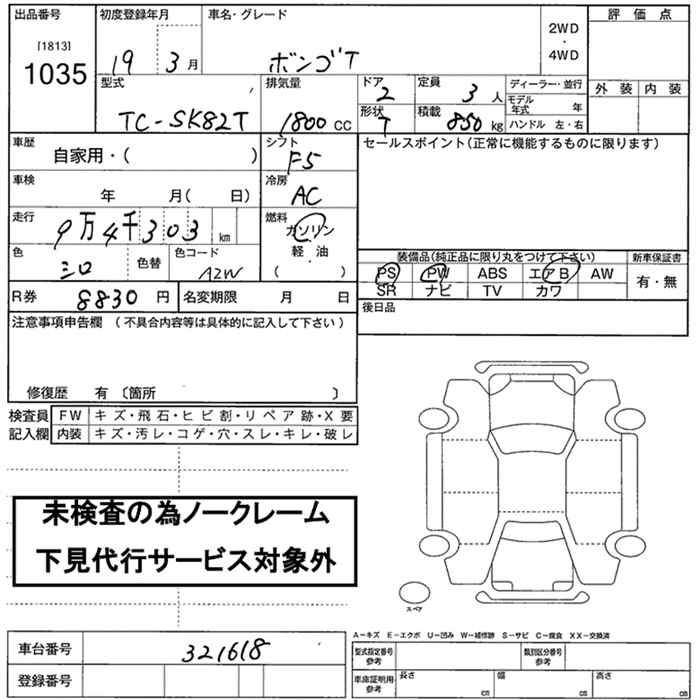 出品番号
[1813]
1035
初度登録年月
19 3月
車名・グレード
ボンゴT
2WD
・
4WD
評価点
外装 内装
型式
TC-SK82T
排気量
1800 CC
ドア
2
形状
T
定員
3人
積載
850 kg
ディーラー・並行
モデル年式 年
ハンドル 左・右
車歴
自家用・( )
シフト
F5
セールスポイント(正常に機能するものに限ります)
車検
年 月( 日)
冷房
AC
走行
9万4千303 km
燃料
ガソリン
・
軽油
( )
色
シロ
色替
色コード
A2W
装備品(純正品に限り丸をつけて下さい)
新車保証書
PS PW ABS エアB AW
SR ナビ TV カワ
有・無
R券 8830 円
名変期限 月 日
後日品
注意事項申告欄 (不具合内容等は具体的に記入して下さい)
修復歴 有〔箇所 〕
検査員
記入欄
FW キズ・飛石・ヒビ割・リペア跡・X要
内装 キズ・汚レ・コゲ・穴・スレ・キレ・破レ
未検査の為ノークレーム
下見代行サービス対象外
スペア
A-キズ E-エクボ U-凹み W-補修跡 S-サビ C-腐食 XX-交換済
車台番号 321618
登録番号
型式指定番号
参考
類別区分番号
参考
車庫証明用
参考
長さ cm
幅 cm
高さ cm